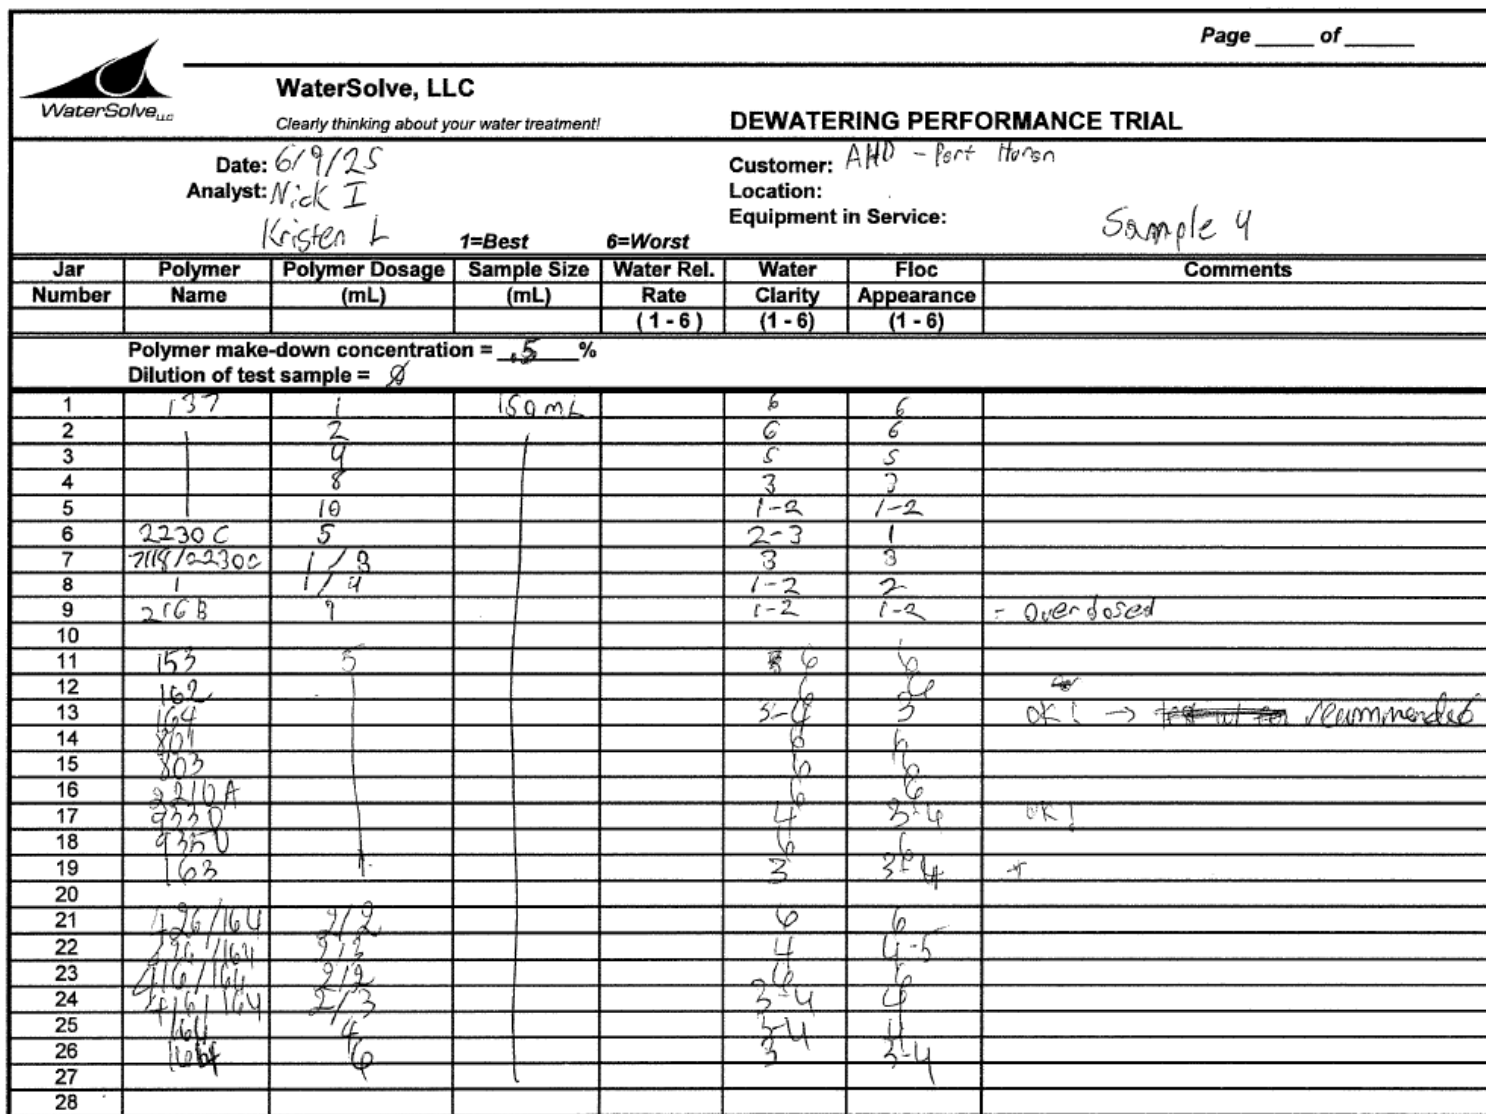 Page _____ of ______
WaterSolve LLC
WaterSolve, LLC
Clearly thinking about your water treatment!
DEWATERING PERFORMANCE TRIAL
Date: 6/9/25 Customer: AHD - Port Huron
Analyst: Nick I Location:
Kristen L Equipment in Service: Sample 4
1=Best 6=Worst
Jar Polymer Polymer Dosage Sample Size Water Rel. Water Floc Comments
Number Name (mL) (mL) Rate Clarity Appearance
( 1 - 6 ) (1 - 6) (1 - 6)
Polymer make-down concentration = .5 %
Dilution of test sample = 0
1 137 1 150 mL 6 6
2 2 6 6
3 4 5 5
4 8 3 3
5 10 1-2 1-2
6 2230 C 5 2-3 1
7 7118/2230C 1/3 3 3
8 1/4 1-2 2
9 216B 9 1-2 1-2 - Overdosed
10
11 153 5 6 6
12 162 6
13 164 3-4 3 OK! → recommended
14 801 6 6
15 803 6 6
16 2210A 6 6
17 933D 4 3-4 OK!
18 935D 6 6
19 163 3 3-4
20
21 426/164 2/2 6 6
22 /164 4 4-5
23 416/164 2/2 6 6
24 416/164 2/3 3-4 4
25 164 4 3-4 4
26 164 6 3 3-4
27
28